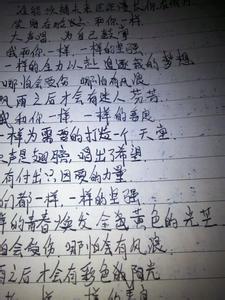 笑留在脸上 和你一样
大声唱 为自己鼓掌
我和你一样 一样的坚强
一样的全力以赴追逐我的梦想
哪怕会受伤 哪怕有风浪
风雨之后才会有迷人芬芳
我和你一样 一样的善良
一样为需要的打造一个天堂
歌声是翅膀 唱出了希望
有付出只因爱的力量
们都一样 一样的坚强
样的青春焕发金黄色的光芒
怕会受伤 哪怕会有风浪
雨之后才会有彩色的阳光
一样 一样的善良